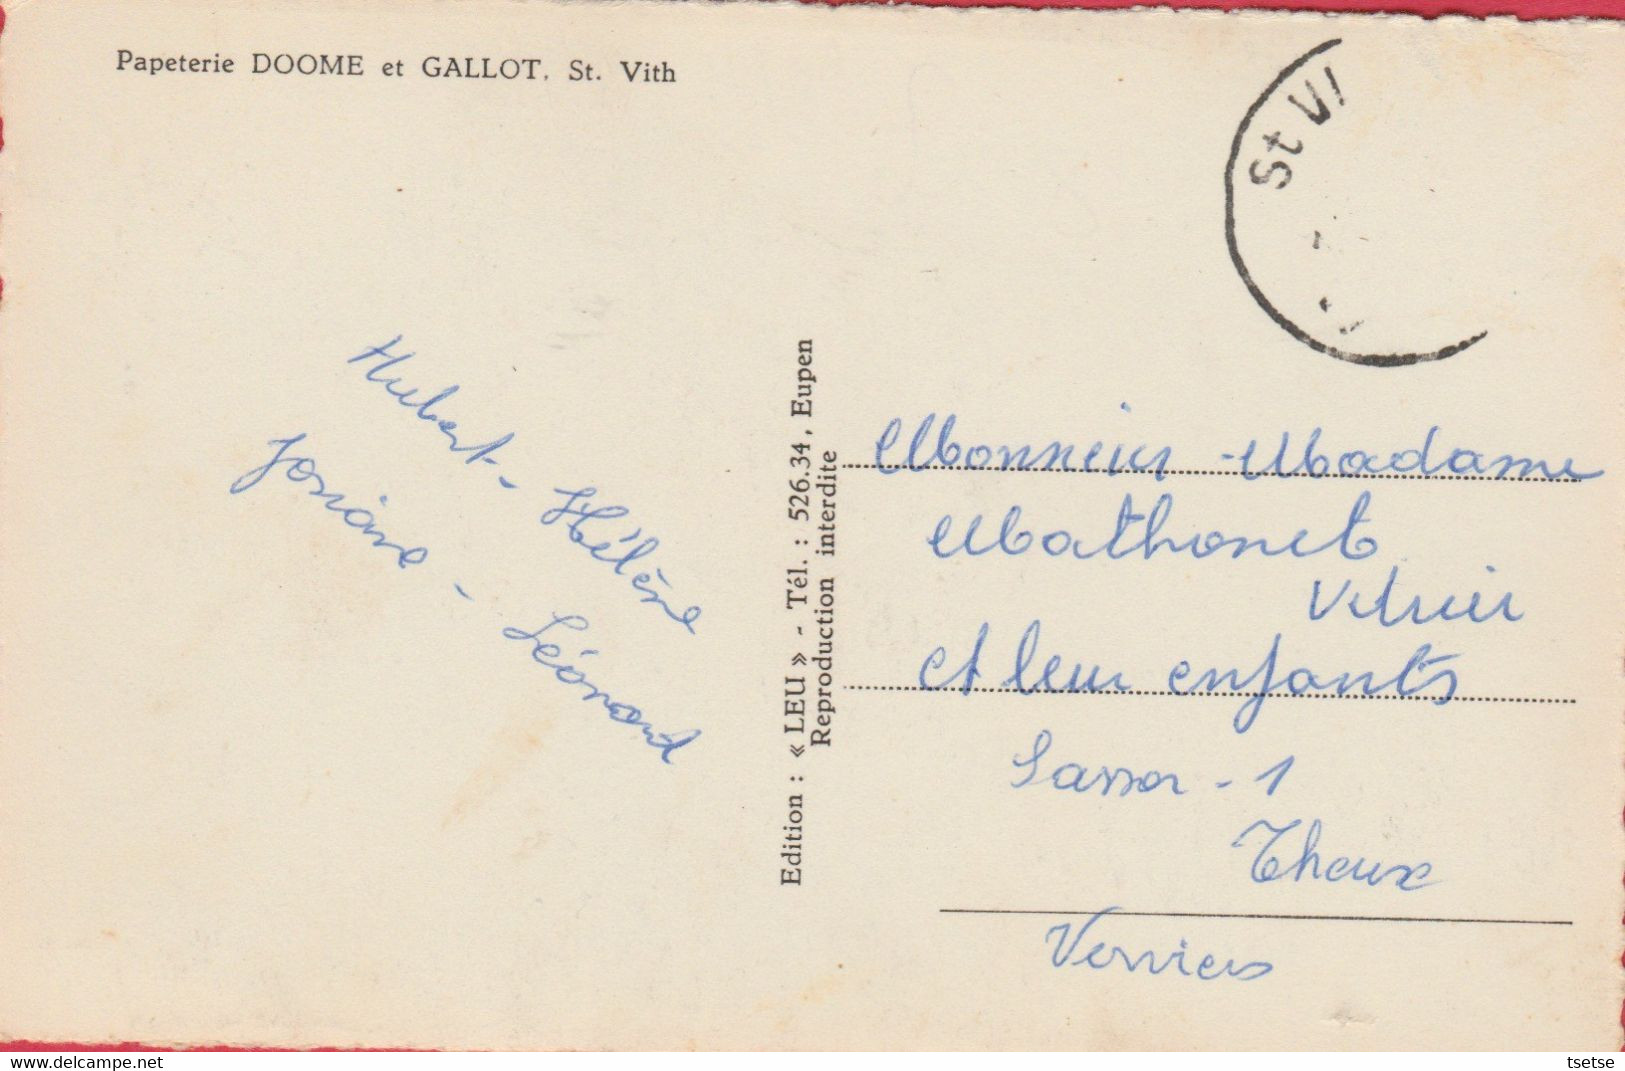 Papeterie DOOME et GALLOT, St. Vith
St VI
Hubert - Hélène
Josiane - Léonard
Edition : « LEU » - Tél. : 526.34, Eupen
Reproduction interdite
Monsieur - Madame
Mathonet
et leur enfants
Sassor - 1
Theux
Verviers
tsetse